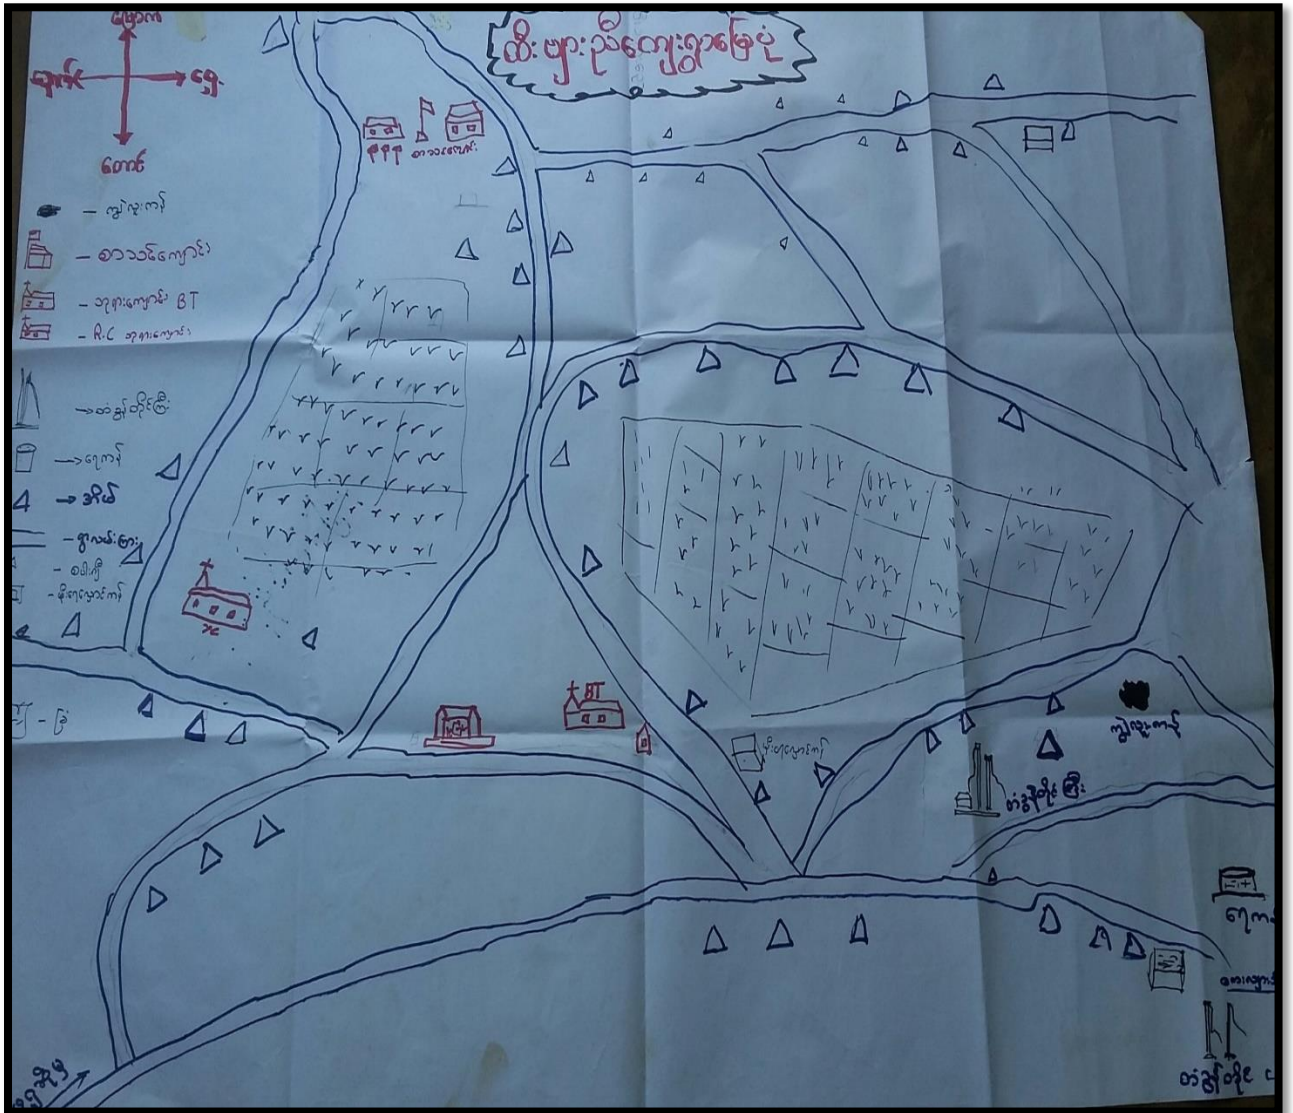 ထီးဗျားညီကျေးရွာမြေပုံ
မြောက်
အရှေ့
တောင်
– ကျွဲလူးကန်
– စာသင်ကျောင်း
– ဘုရားကျောင်း BT
– R.C ဘုရားကျောင်း
→ တံခွန်တိုင်ကြီး
→ ရေကန်
→ အိမ်
– ရွာလမ်းများ
– မိုးရေလှောင်ကန်
– ခြံ
စာသင်ကျောင်း
BT
မိုးရေလှောင်ကန်
ကျွဲလူးကန်
တံခွန်တိုင်ကြီး
ရေက
တံခွန်တိုင်